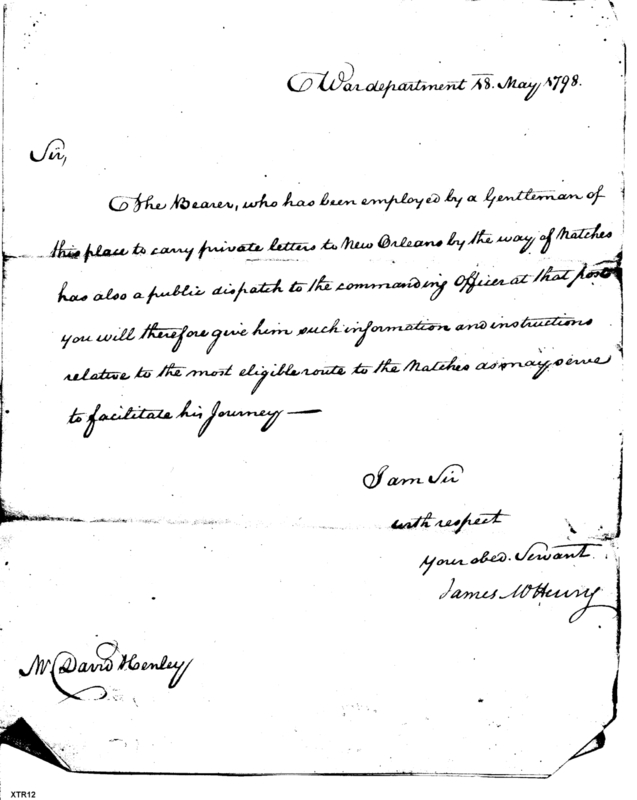 War department 18. May 1798.
Sir,
The Bearer, who has been employed by a Gentleman of
this place to carry private letters to New Orleans by the way of Natches
has also a public dispatch to the commanding Officer at that post
you will therefore give him such information and instructions
relative to the most eligible route to the Natches as may serve
to facilitate his Journey —
I am Sir
with respect
your obed. Servant
James McHenry
Mr. David Henley
XTR12